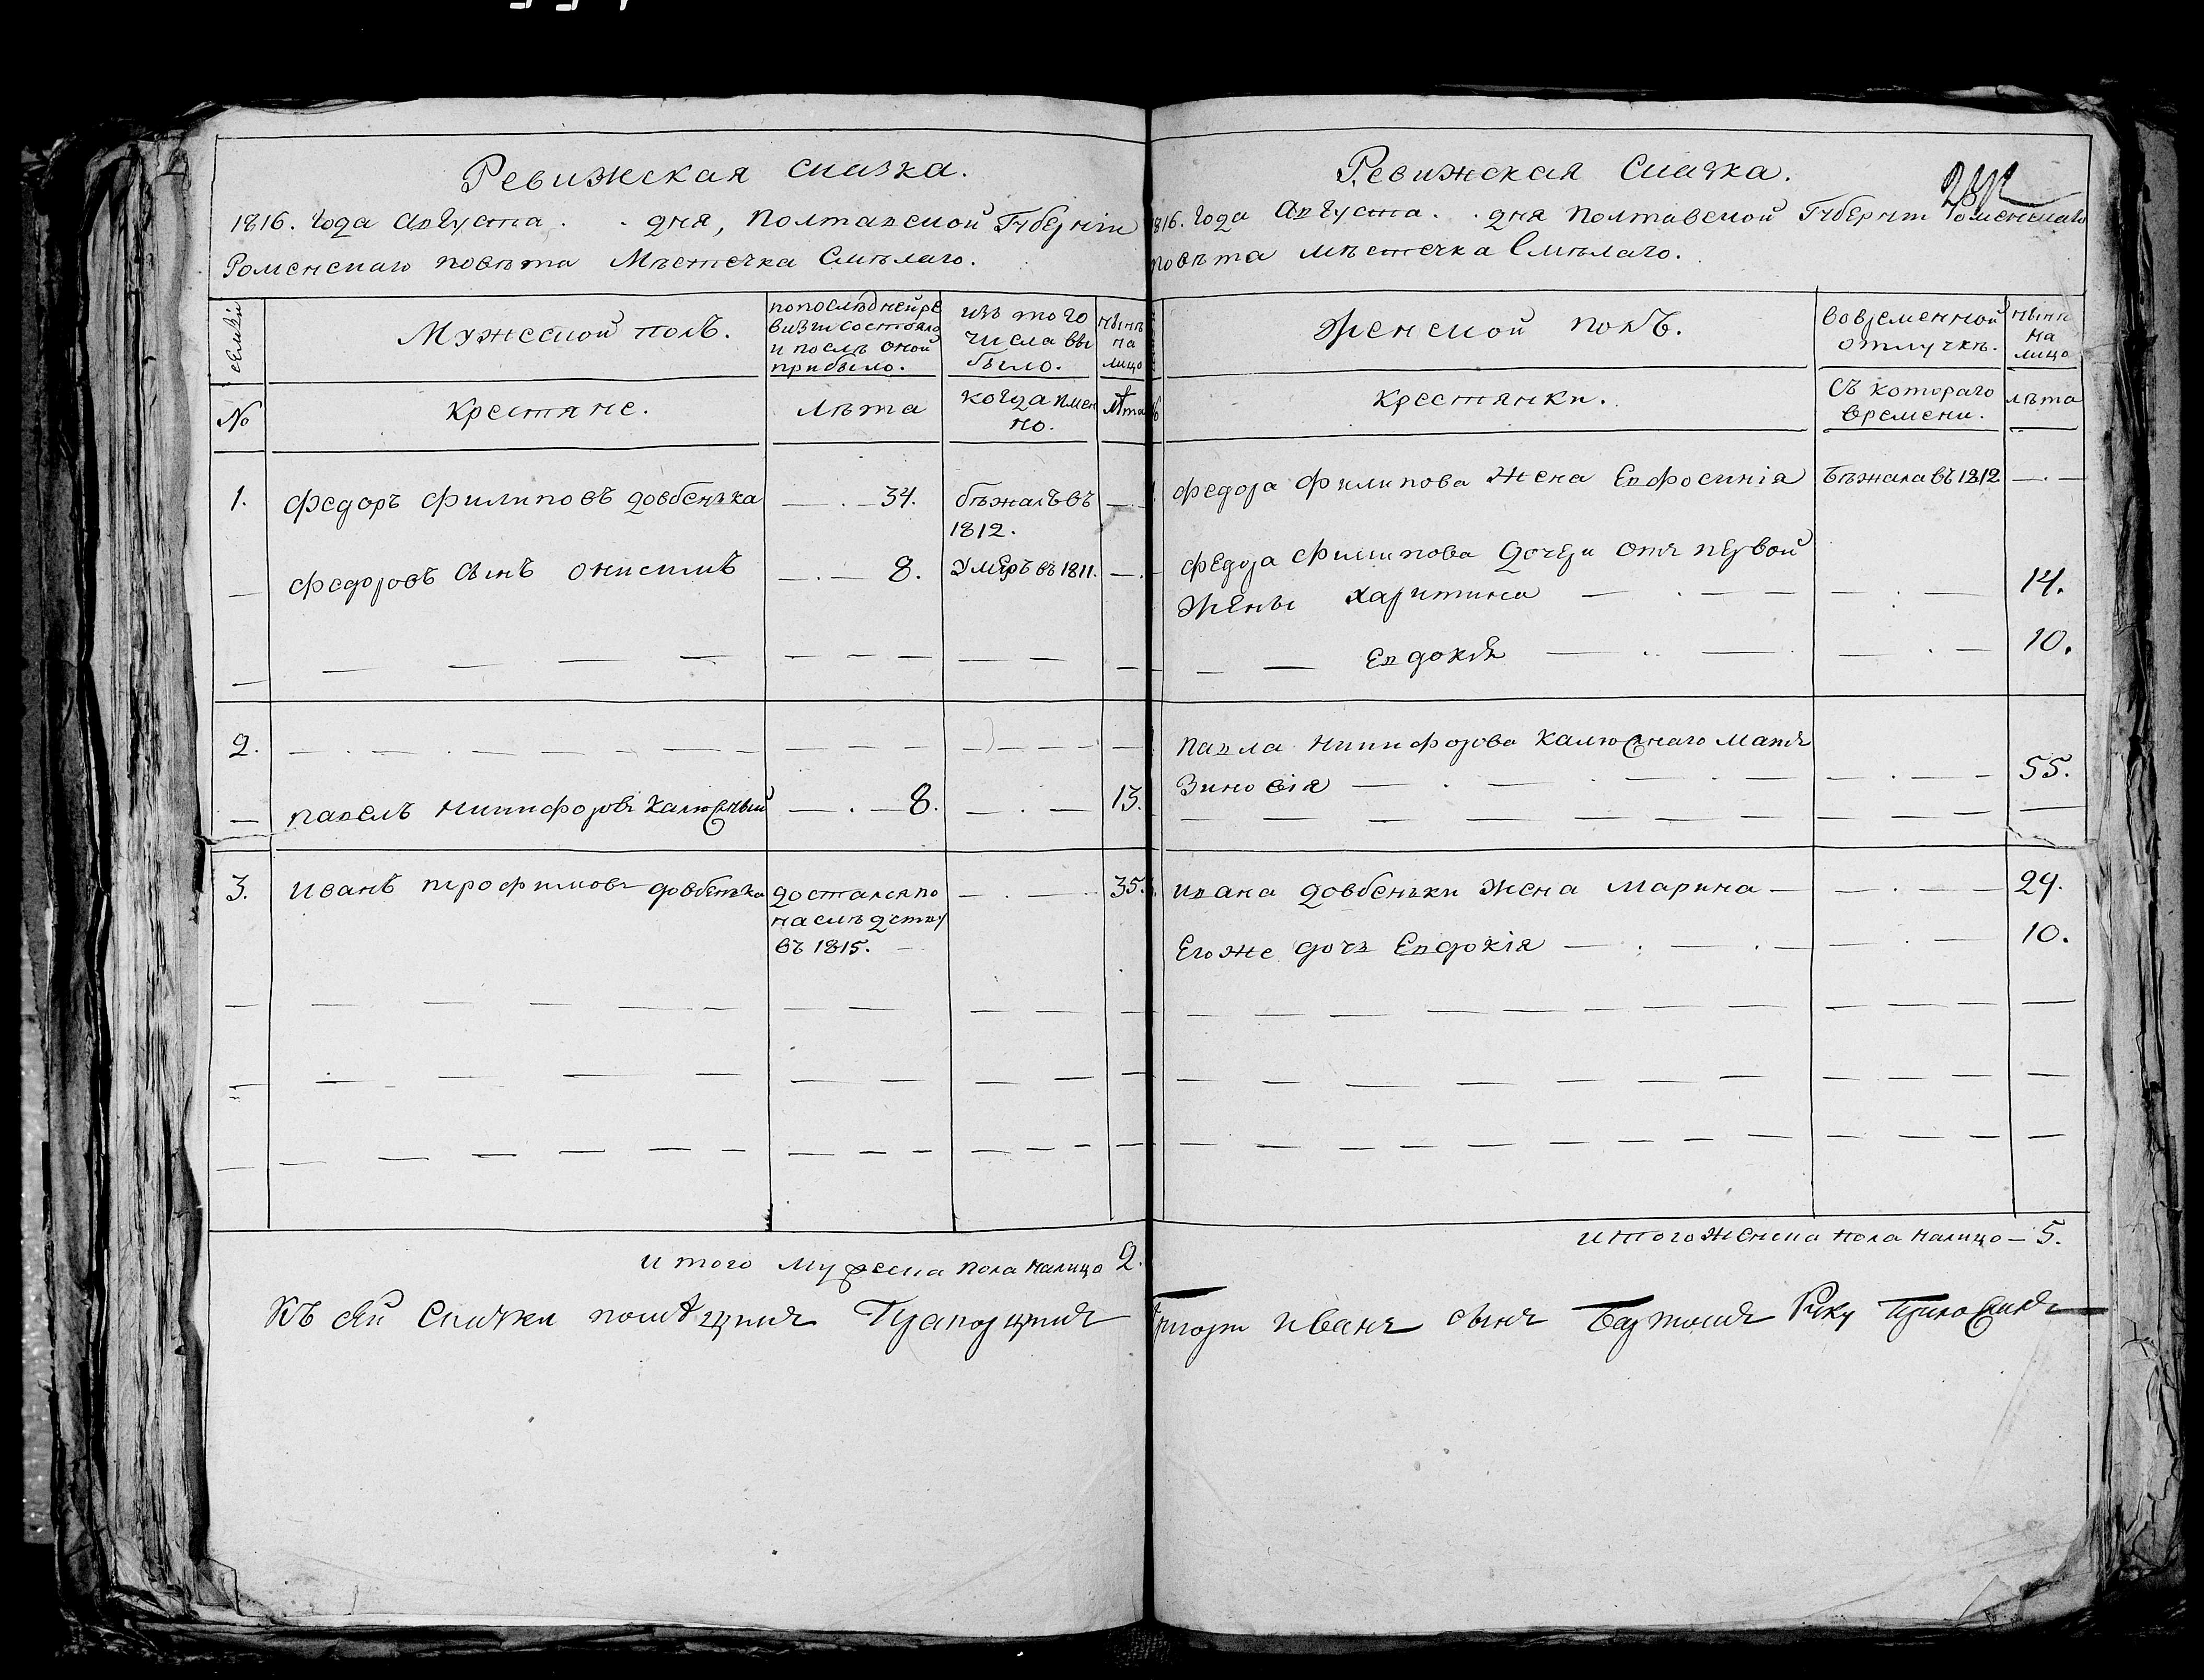 Ревижская сказка.
1816. года августа . . дня, Полтавской Губернiи
Роменскаго повѣта Мѣстечка Смѣлаго.
семьи
Мужеской полъ.
по последней ре
визiи состояло
и послѣ оной
прибыло.
изъ того
числа вы
было.
нынѣ
на
лицо
№
Крестяне.
лѣта
когда имен
но.
лѣта
1. Федоръ Филиповъ довбенька —.— 34. бѣжалъ въ —
1812.
— Федоровъ сынъ Онисимъ —.— 8. Умеръ въ 1811. —
2.
— Павелъ Никифоровъ Калюжный —.— 8. —.— 13.
3. Иванъ трофимовъ довбенька достался по —.— 35.
наслѣдству
въ 1815.
итого мужеска пола налицо 2.
Къ сей Сказки помѣщикъ Прапорщикъ
Ревижская Сказка.
1816. Года августа . . дня Полтавской Губернiи Роменскаго
повѣта мѣстечка Смѣлаго.
Женской полъ.
во временной
отлучкѣ.
нынѣ
на
лицо
№
Крестянки.
съ котораго
времени.
лѣта
Федора Филипова Жена Евфосинiя Бѣжала въ 1812 —.—
Федора Филипова дочери отъ первой
Жены харитина — 14.
— — Евдокiя — 10.
Павла Никифорова Калюжнаго Мать
Зиновiя — 55.
Ивана довбеньки Жена Марина — 29.
Егоже дочь Евдокiя — 10.
итого женска пола налицо — 5.
Григорiй Иванъ сынъ Руку Приложилъ